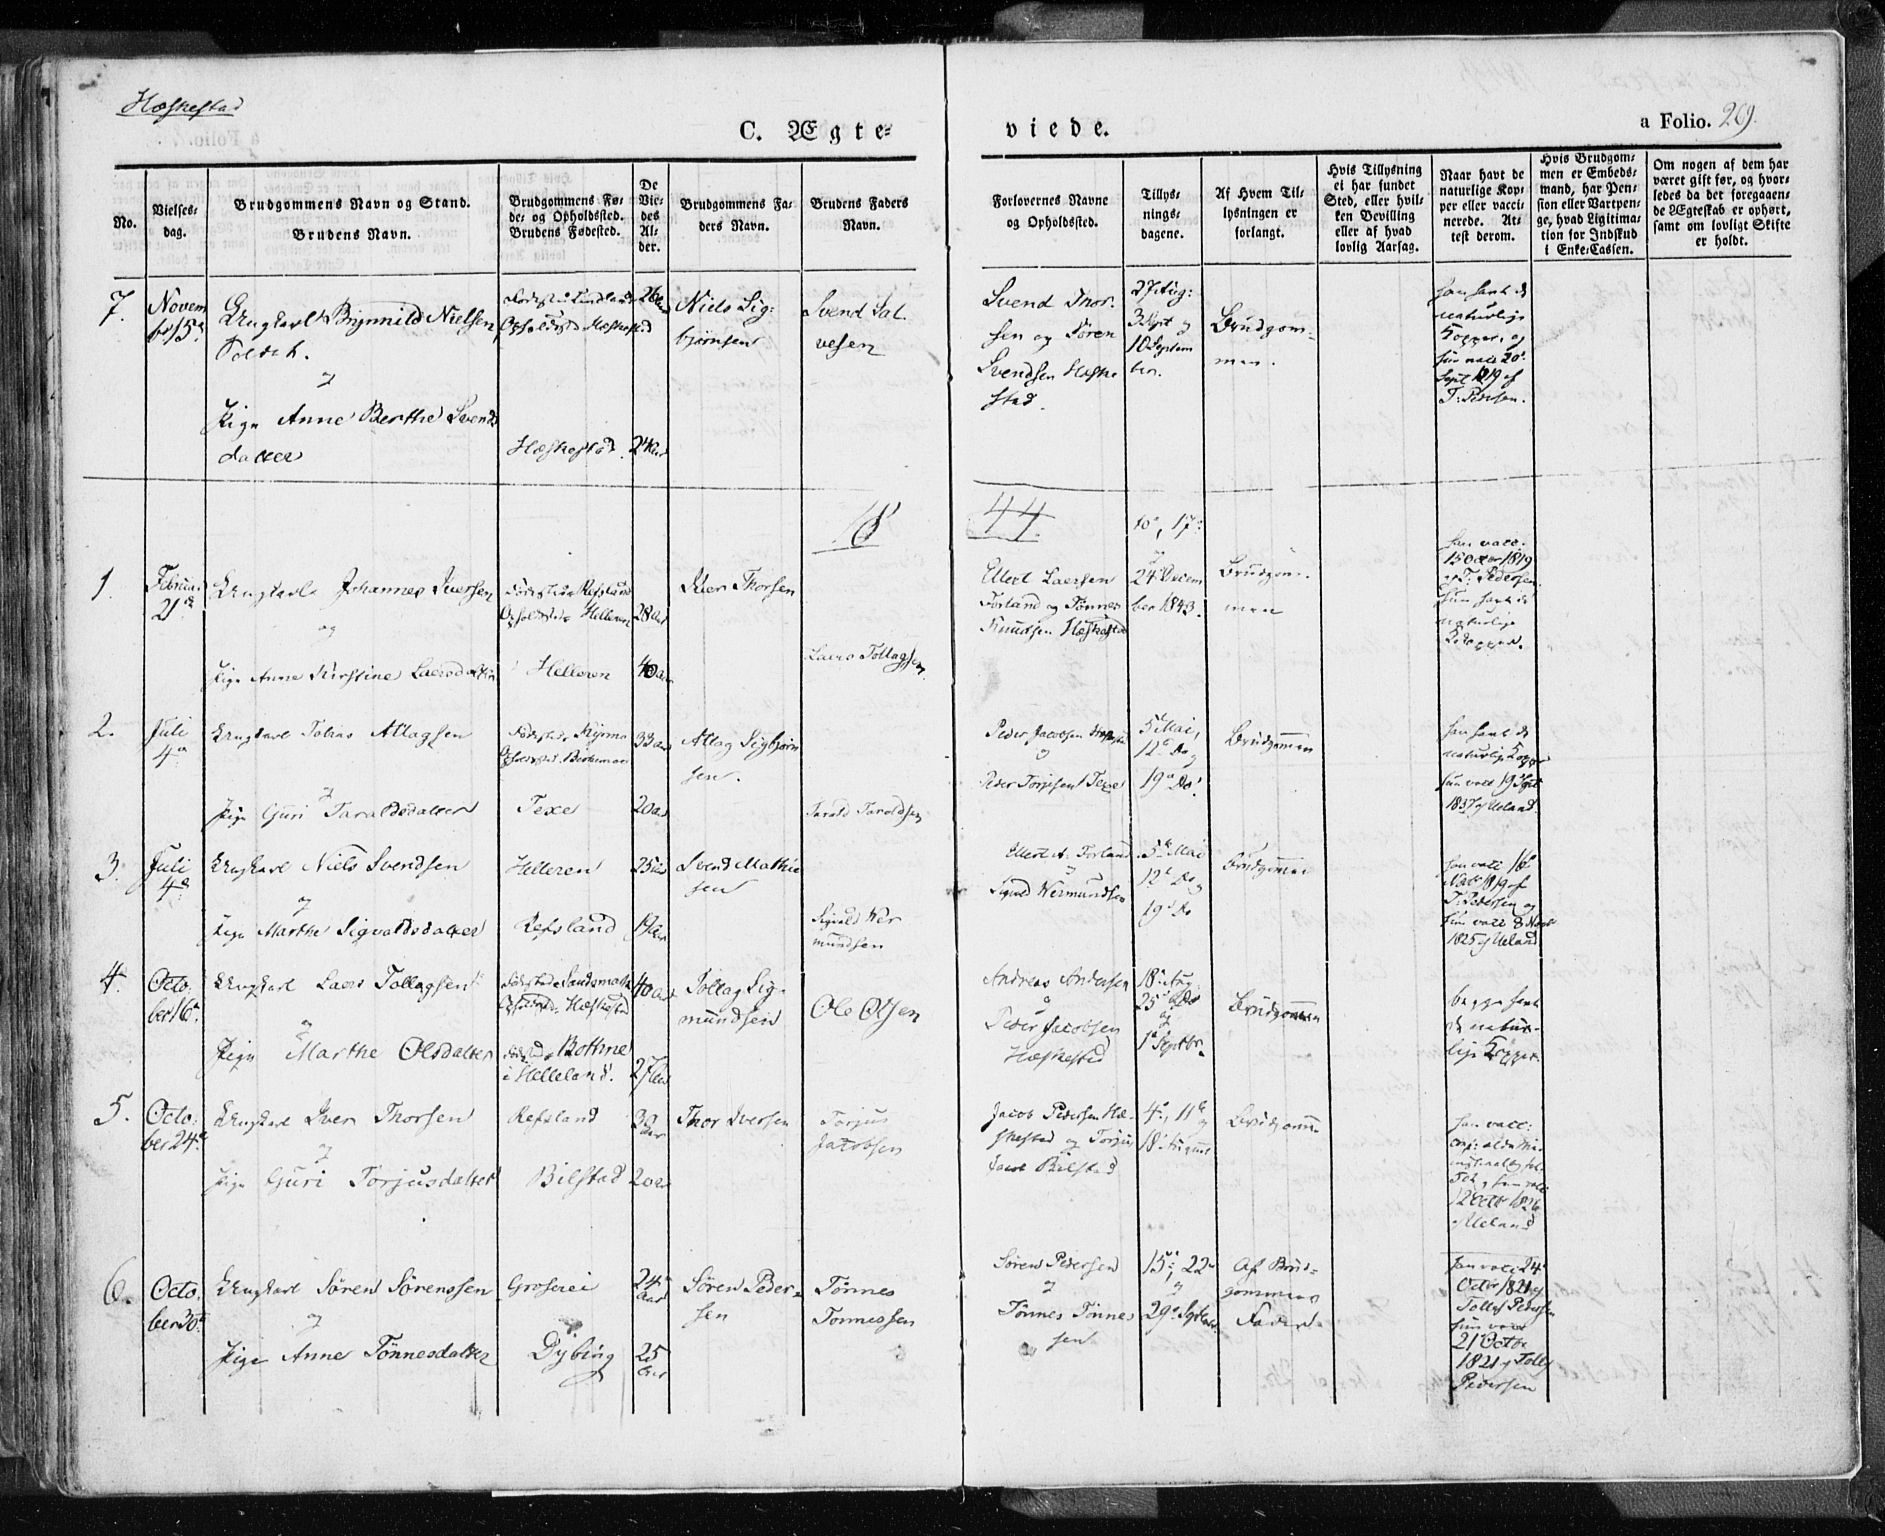 Heskestad
C. Ægte-
viede.
a Folio. 269.
No.
Vielses-
dag.
Brudgommens Navn og Stand.
Brudens Navn.
Brudgommens Fø-
de- og Opholdssted.
Brudens Fødested.
De
Vie-
des
Al-
der.
Brudgommens Fa-
ders Navn.
Brudens Faders
Navn.
Forlovernes Navne
og Opholdssted.
Tillys-
nings-
dagene.
Af Hvem Til-
lysningen er
forlangt.
Hvis Tillysning
ei har fundet
Sted, eller hvil-
ken Bevilling
eller af hvad
lovlig Aarsag.
Naar havt de
naturlige Kop-
per eller vacci-
nerede. At-
test derom.
Hvis Brudgom-
men er Embeds-
mand, har Pen-
sion eller Vartpen-
ge, hvad Ligitima-
tion for Indskud
i Enke-Cassen.
Om nogen af dem har
været gift før, og hvor-
ledes da det foregaaen-
de Ægteskab er ophørt,
samt om lovligt Skifte
er holdt.
7.
Novem
br 15de
Ungkarl Brynnild Nielsen
og
Pige Anne Berthe Svends
datter
Opholdsted Heskestad
Heskestad.
26 Aar
24 Aar
Niels Sig-
bjørnsen
Svend Sal-
vesen
Svend Thor-
sen og Sören
Svendsen Heske
stad.
27 Aug:
3 Sept og
10 Septem
ber.
Brudgom-
men.
han havt de
naturlige
Kopper, og
hun vacc 20de
Sept 1819 af
T. Pedersen.
18
44.
1.
Februar
21de
Ungkarl Johannes Iversen
og
Pige Anne Kirstine Laersdatter
Fødested Refsland
Opholdsted Helleren
Helleren
28 Aar
40 Aar
Iver Thorsen
Laers Tollagsen
Ellert Laersen
Forland og Tönnes
Knudsen Heskestad
10de, 17de
og
24de Decem
ber 1843.
Brudgom-
men
han vacc:
15 Octbr 1819
af T. Pedersen
hun havt de
naturlige
Kopper.
2.
Juli
4de
Ungkarl Tobias Atlagsen
og
Pige Guri Taraldsdatter
Opholdsted Birkemoe
Texe
33 Aar
20 Aar
Atlag Sigbjørn
sen.
Tarald Taraldsen
Peder Jacobsen Heskestad
og
Peder Torjesen Texe
5de Mai,
12de Do og
19de Do
Brudgommen
han havt de
naturlige Kopper
hun vacc 19 Sept
1837 af Ueland
3.
Juli
4de
Ungkarl Niels Svendsen
og
Pige Marthe Sigvaldsdatter
Helleren
Refsland
25 Aar
19 Aar
Svend Mathie
sen
Sigvald Wer
mundsen
Ellert A. Forland
og
Sigvald Wermundsen
5de Mai
12de Do og
19de Do
Brudgommen
han vacc 16de
1819 af
T. Pedersen og
hun vacc
1825 af Ueland
4.
Octo
ber 16de
Ungkarl Laers Tollagsen
og
Pige Marthe Olsdatter
Opholdsted Heskestad
Fødested Bothne
i Helleland.
40 Aar
27 Aar
Tollag Sig-
mundsen
Ole Olsen
Andreas Andersen
og
Peder Jacobsen
Heskestad
18de Aug:
25de Do
og
1de Septbr.
Brudgommen
begge havt
de natur-
lige Kopper.
5.
Octo:
ber 24de
Ungkarl Iver Thorsen
og
Pige Guri Torjusdatter
Refsland
Bilstad
30 Aar
20 Aar
Thor Iversen
Torjus
Jacobsen
Jacob Pedersen He-
skestad og Torjus
Jacobs Bilstad
4de, 11de og
18de August
Brudgommen
han vacc:
hun vacc
12 Octbr 1826
af Ueland
6.
Octo
ber 30te
Ungkarl Sören Sörenssen
og
Pige Anne Tönnesdatter
Groserei
Dybing
24
Aar
25
Aar
Sören Peder-
sen
Tönnes
Tonnessen
Sören Pedersen
og
Tönnes Tönnes
sen
15de, 22de
og
29de Septbr.
Af Brud-
gommens
Fader.
han vacc 24de
Octbr 1821 af
Tollef Pedersen
hun vacc
21 Octbr
1821 af Tollef
Pedersen